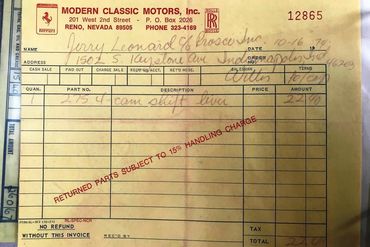 MODERN CLASSIC MOTORS, Inc.
201 West 2nd Street - P.O. Box 2026
RENO, NEVADA 89505 PHONE 323-4169
12865
NAME Jerry Leonard % Prosco Inc. DATE 10-16
ADDRESS 1502 S. Keystone Ave Indianapolis
CASH SALE PAID OUT CHARGE SALE REC'D ACC'T. RET'D MDSE. TERMS
QUAN. PART NO. DESCRIPTION PRICE AMOUNT
1 275 4 cam shift lever 22.40
RETURNED PARTS SUBJECT TO 15% HANDLING CHARGE
NO REFUND
WITHOUT THIS INVOICE REC'D BY
TAX
TOTAL